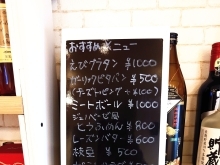 おすすめメニュー
えびグラタン ¥1000
ガーリックピザパン ¥500
(チーズトッピング +¥100)
ミートボール ¥1000
ジェノベーゼ風
とうふめん ¥800
レーズンバター ¥600
枝豆 ¥500